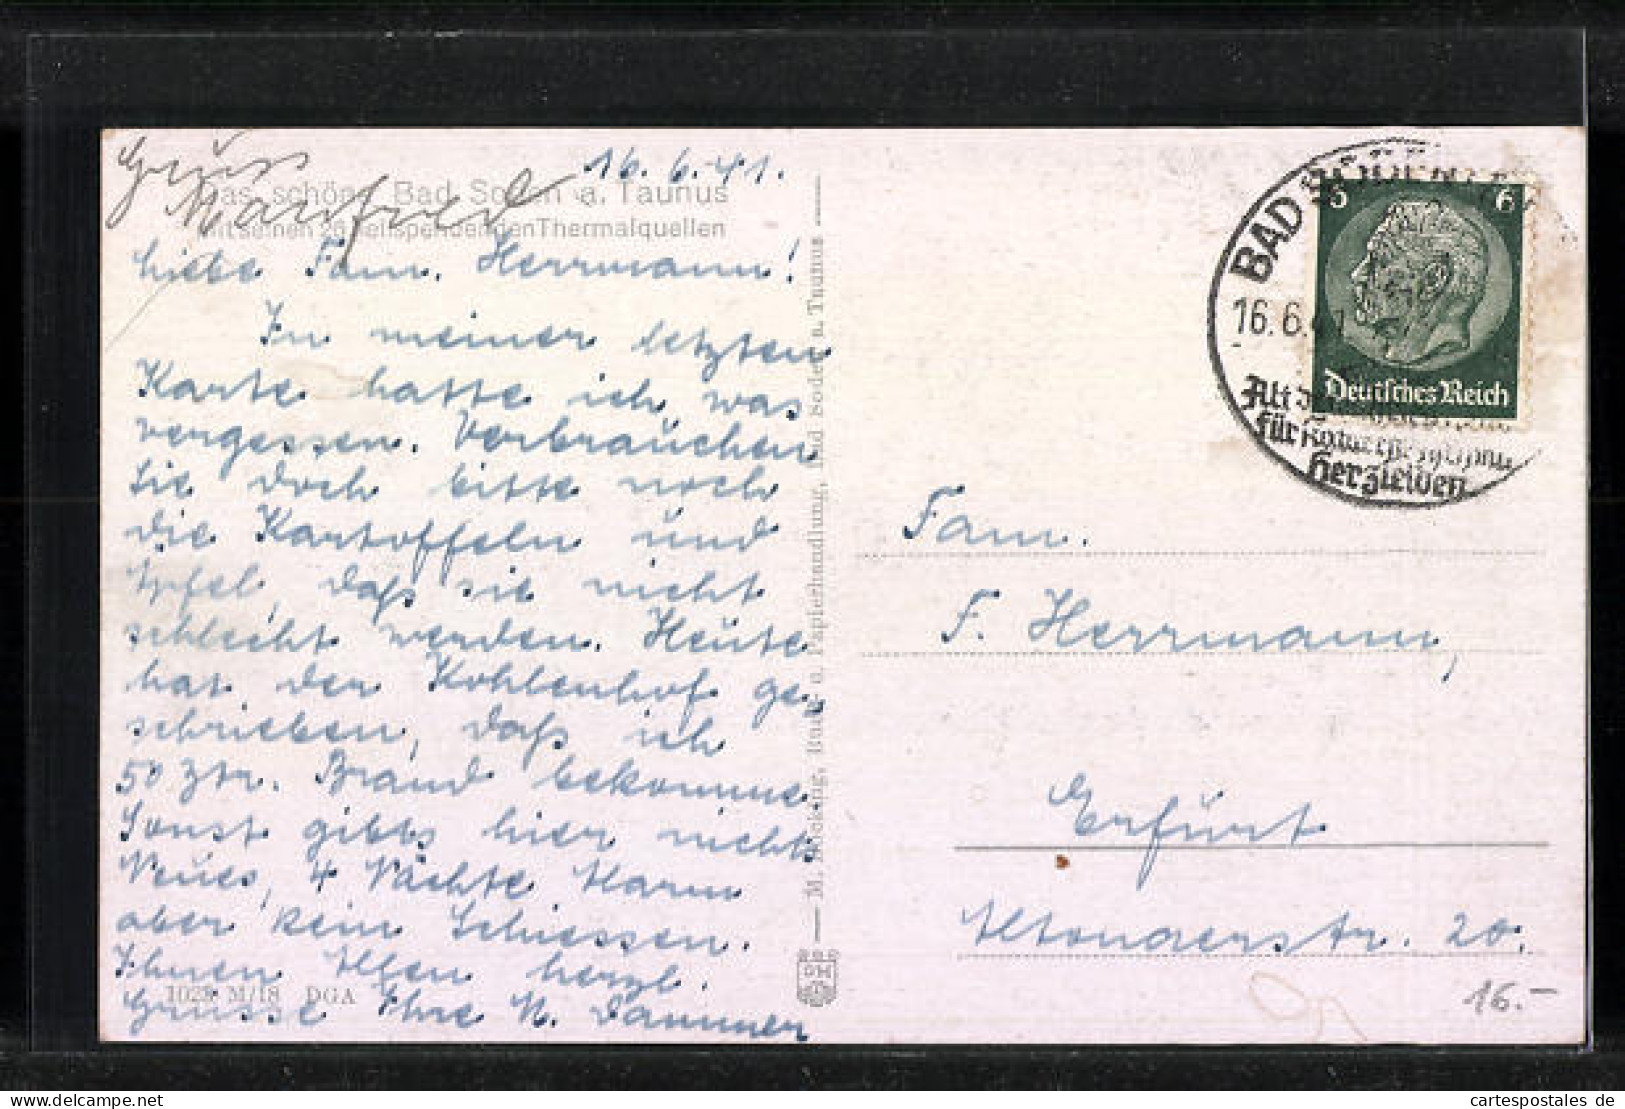 Gruss
Manfred
16.6.41.
Das schöne Bad Soden a. Taunus
mit seinen 26 heilspendenden Thermalquellen
Liebe Fam. Herrmann!
In meiner letzten
Karte hatte ich was
vergessen. Verbrauchen
Sie doch bitte noch
die Kartoffeln und
Äpfel, daß sie nicht
schlecht werden. Heute
hat der Kohlenhof ge-
schrieben, daß ich
50 Ztr. Brand bekomme
Sonst gibts hier nichts
Neues, 4 Nächte Alarm
aber kein Schiessen.
Ihnen Allen herzl.
Grüsse Ihre N. Dammer
1023 M/18 DGA
M. Böcking, Buch- u. Papierhandlung, Bad Soden a. Taunus
BAD SODEN
16.6.41
für Katarrhe, Asthma
Herzleiden
6 6
Deutsches Reich
Fam.
F. Herrmann,
Erfurt
Altonaerstr. 20.
16.-
cartespostales de